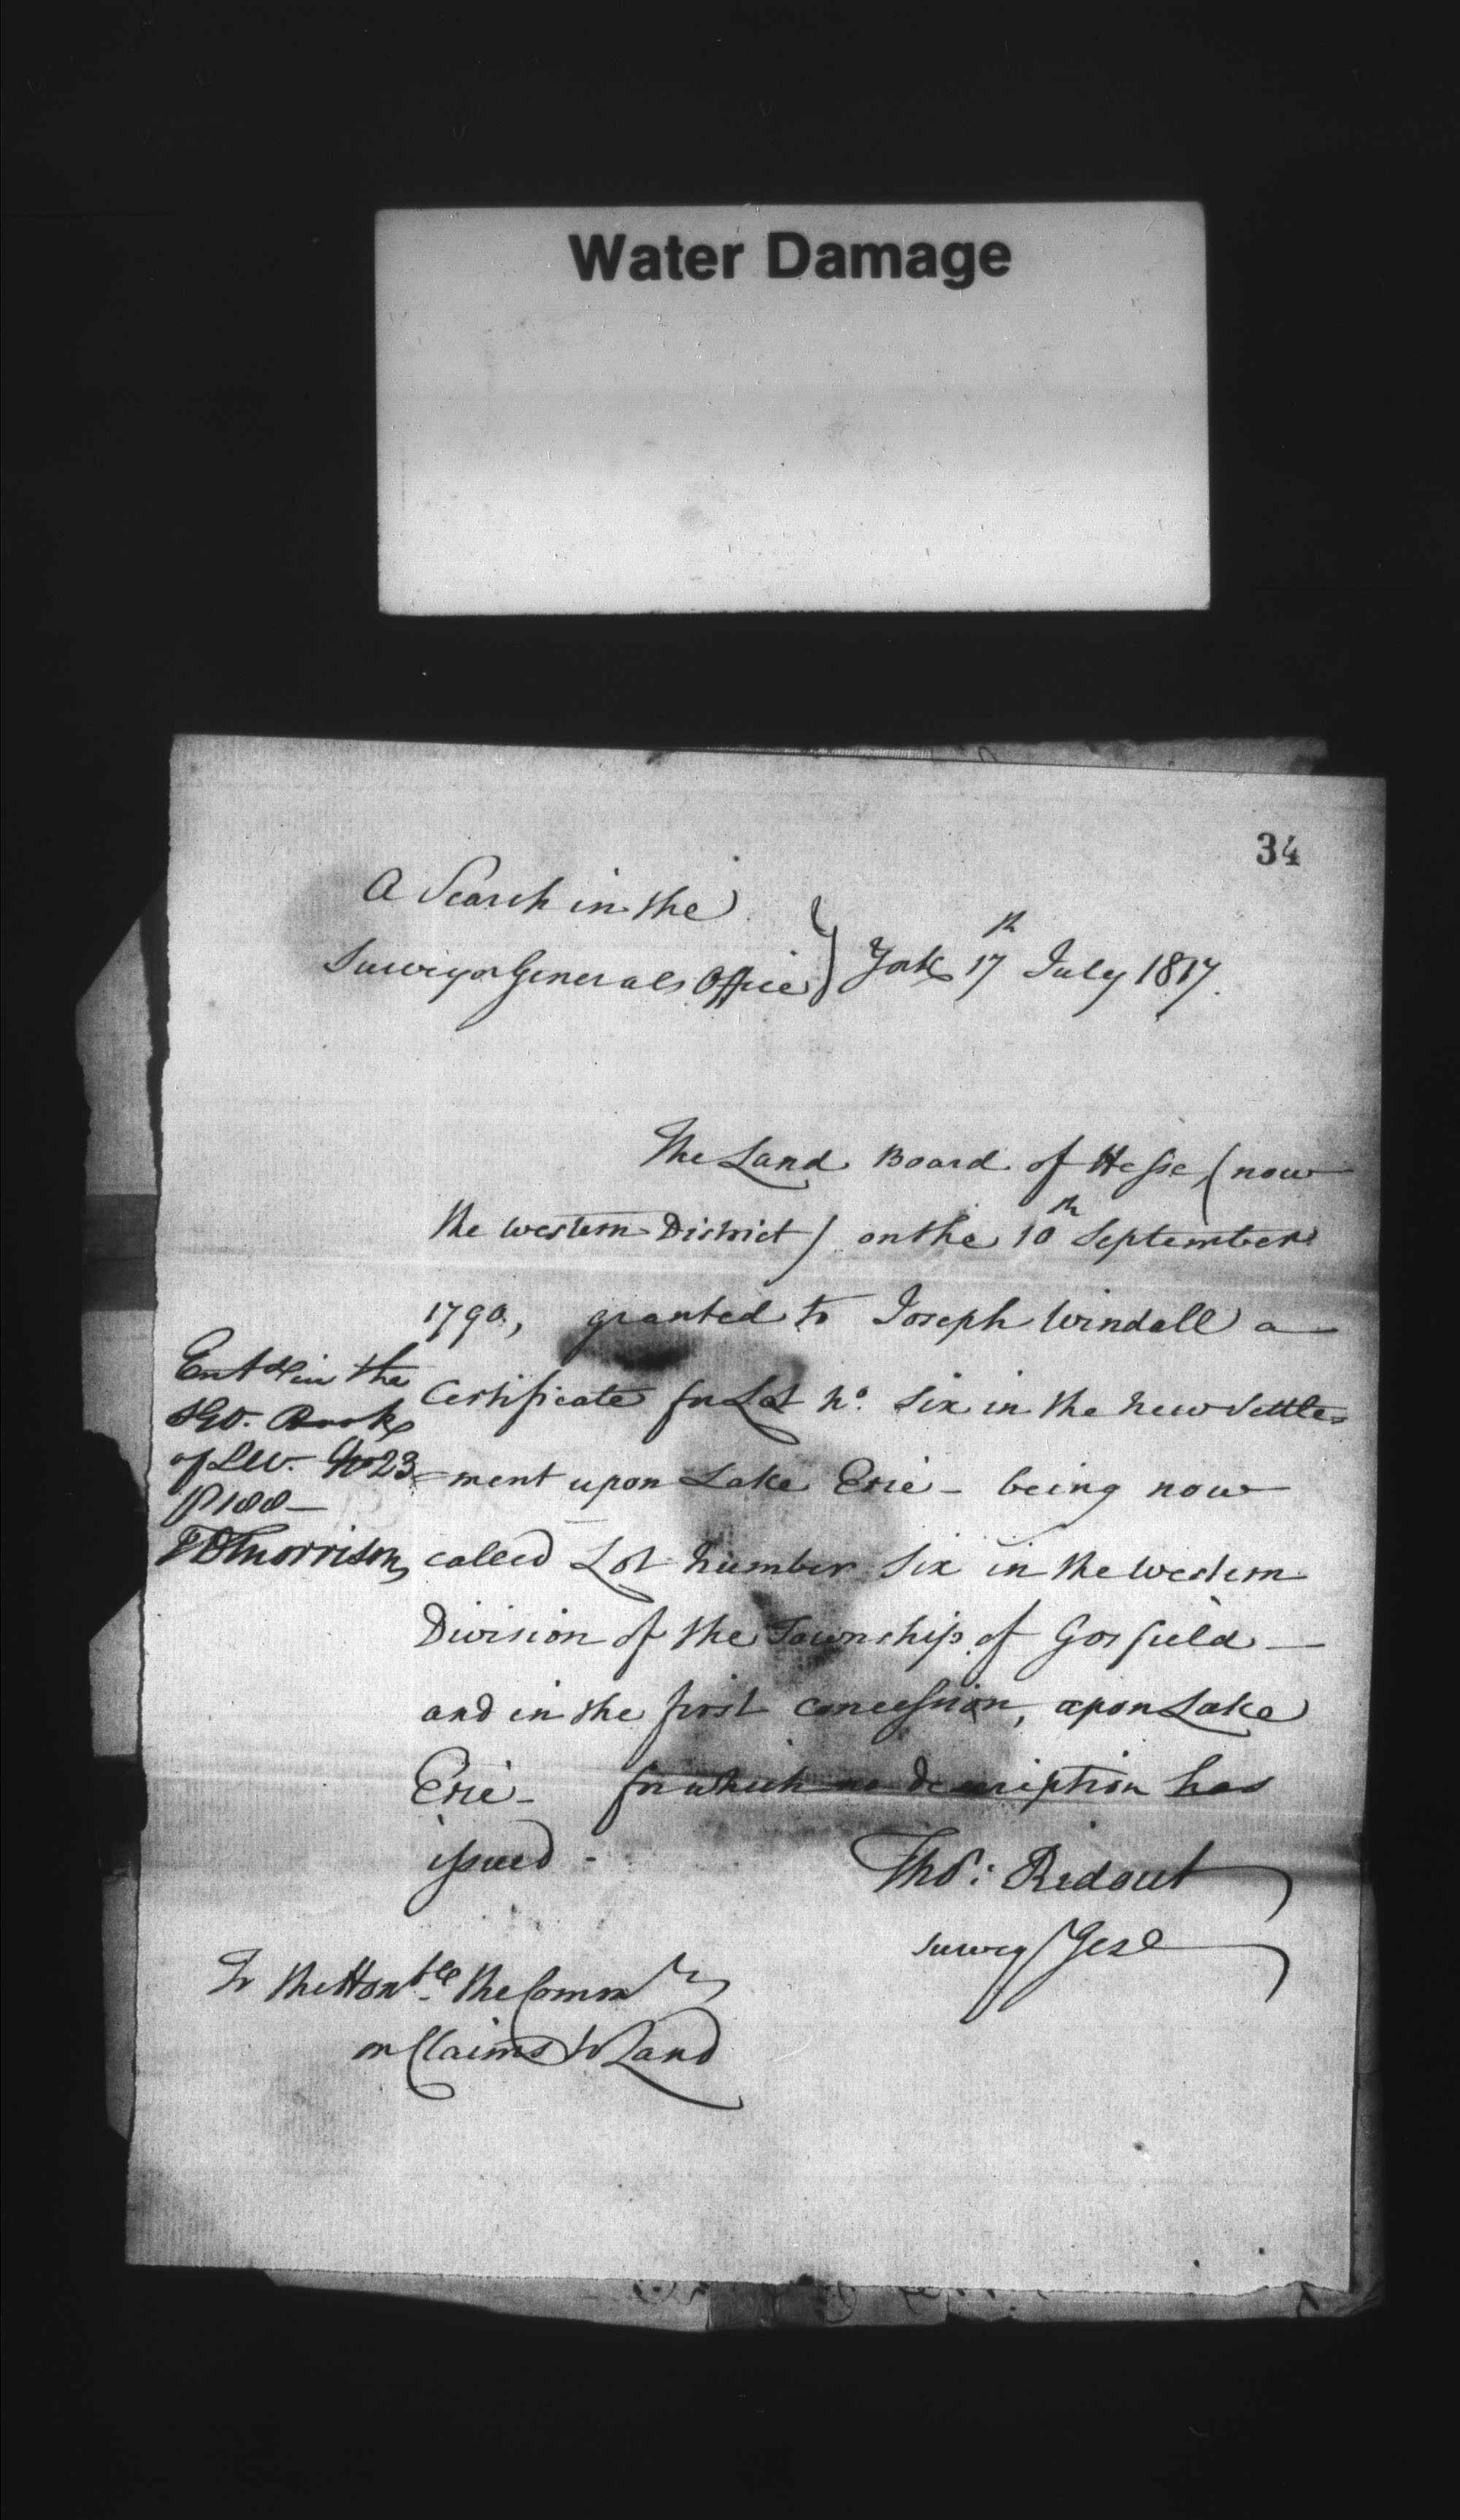 Water Damage
34
A Search in the
Surveyor Generals Office } York 17th July 1817.
The Land Board of Hesse, (now
the western District) on the 10th September
1790, granted to Joseph Windall a
Certificate for Lot No. Six in the new settle=
=ment upon Lake Erie - being now
called Lot number Six in the western
Division of the Township of Gosfield —
and in the first concession, upon Lake
Erie - for which no description has
issued -
Thos: Ridout
Survey Genl
Entd in the
Book
of No 23
P 188 —
TDMorrison
To the Honble the Commrs
on Claims to Land